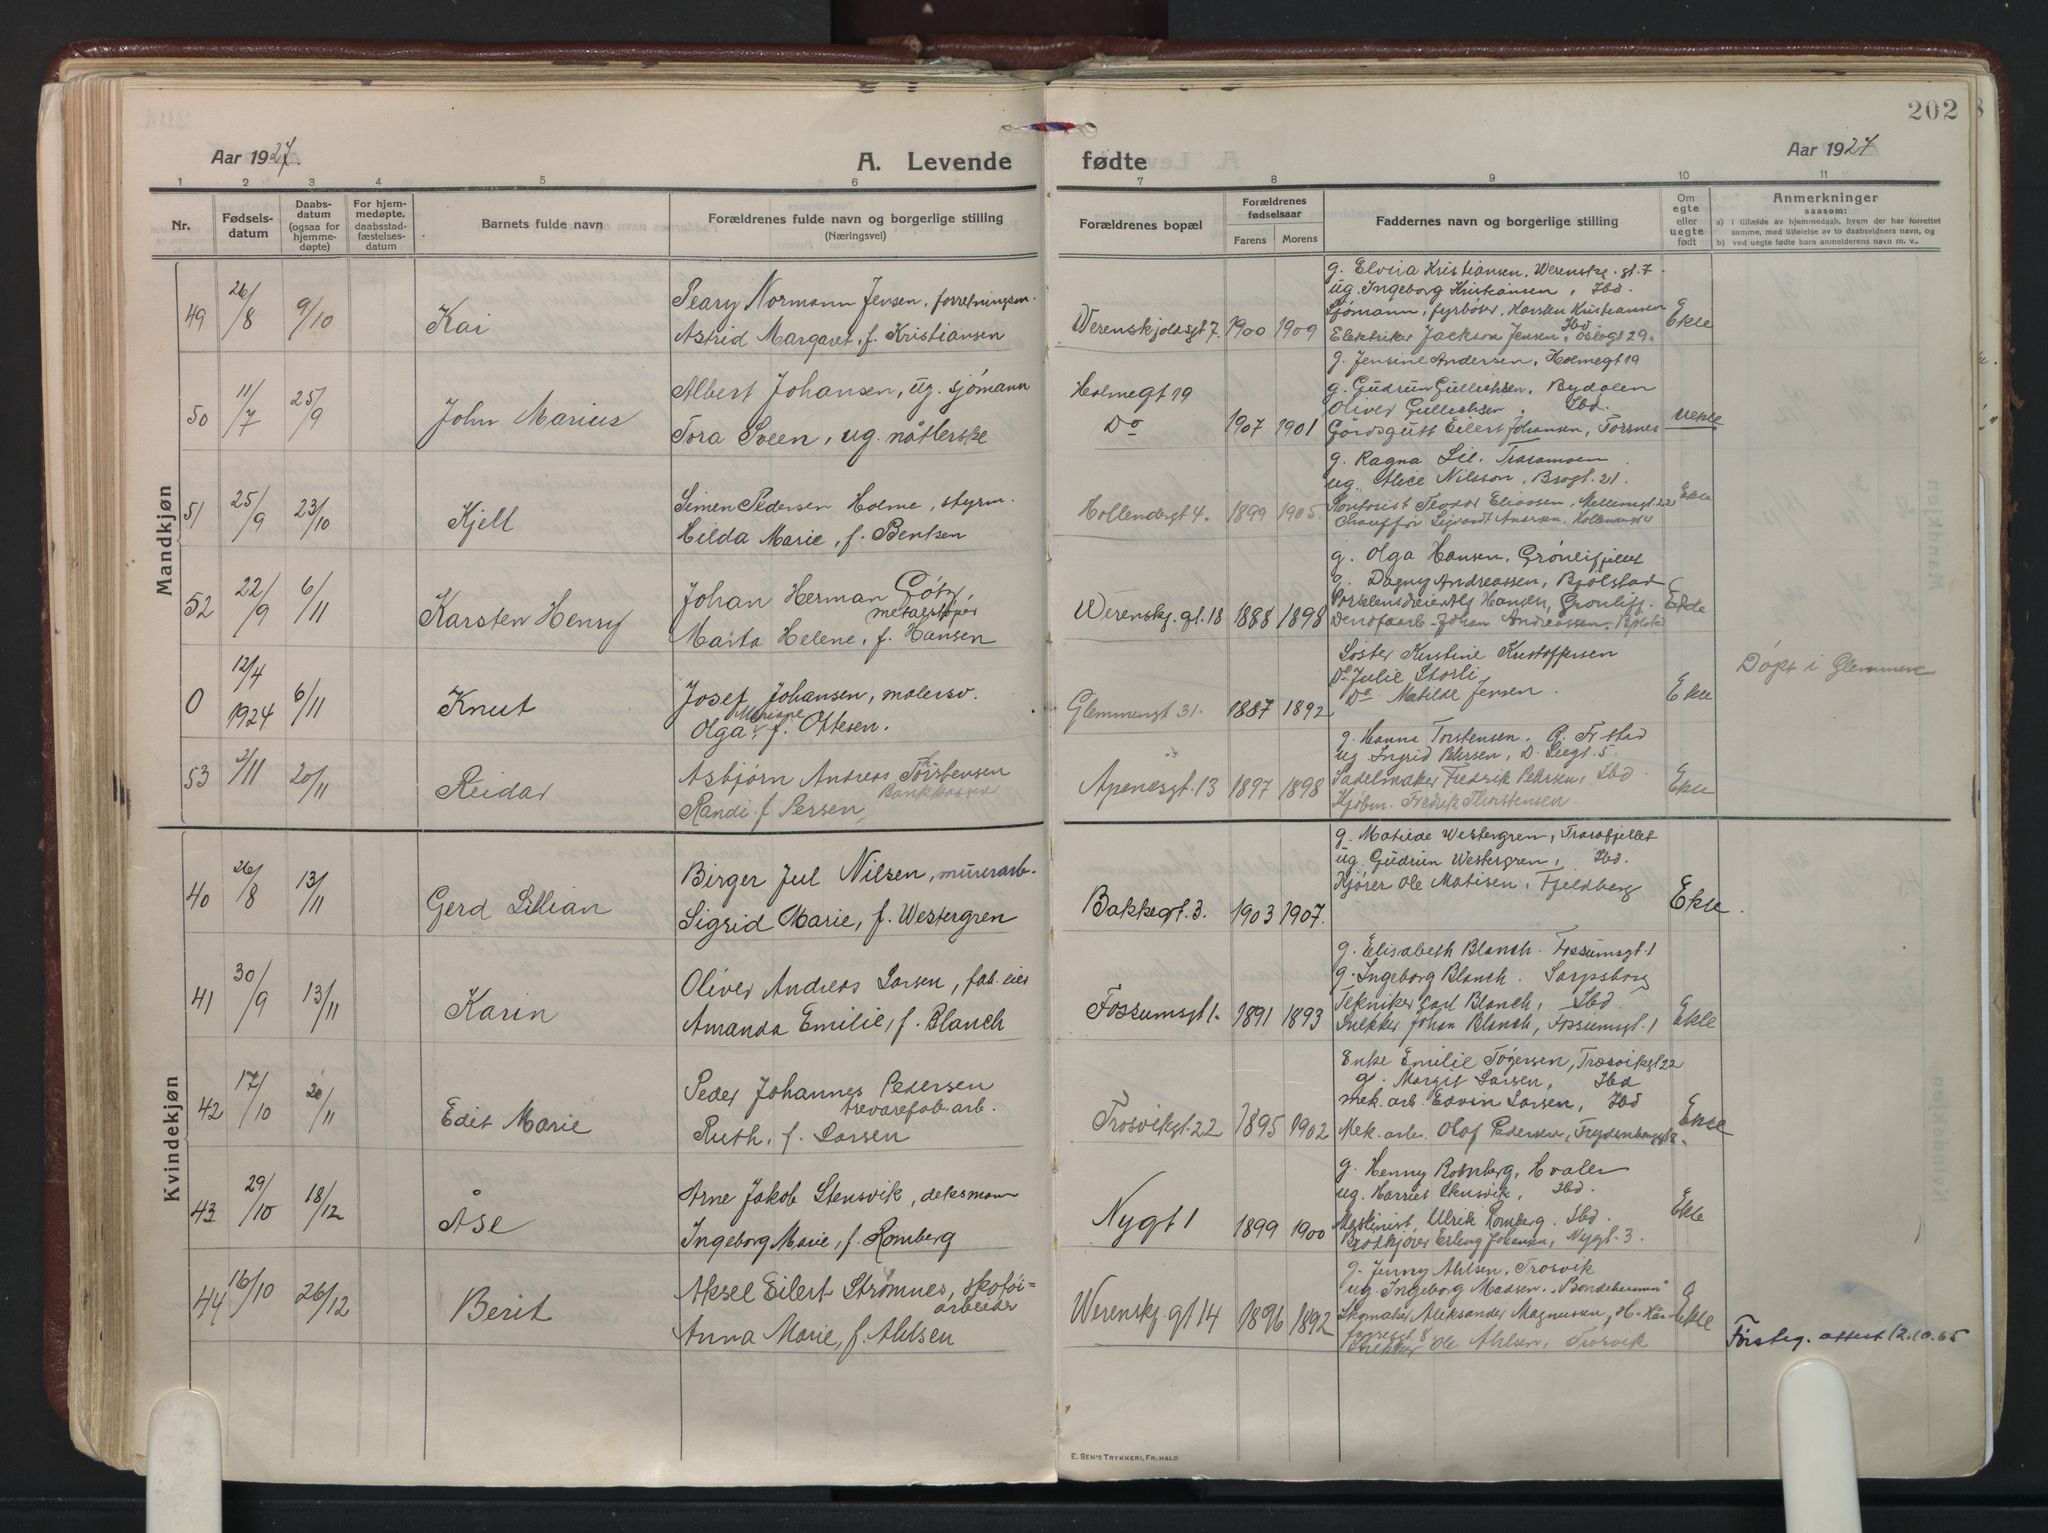 202
Aar 1927.
A. Levende
fødte
Aar 1927
1 2 3 4 5 6 7 8 9 10 11
Nr.
Fødsels-
datum
Daabs-
datum
(ogsaa for
hjemme-
døpte)
For hjem-
medøpte,
daabsstad-
fæstelses-
datum
Barnets fulde navn
Forældrenes fulde navn og borgerlige stilling
(Næringsvei)
Forældrenes bopæl
Forældrenes
fødselsaar
Farens Morens
Faddernes navn og borgerlige stilling
Om
egte
eller
uegte
født
Anmerkninger
saasom:
a) i tilfælde av hjemmedaab, hvem der har forrettet
samme, med tilføielse av to daabsvidners navn, og
b) ved uegte fødte barn anmelderens navn m. v.
Mandkjøn
49 26/8 9/10 Kai
Peary Normann Jensen, forretningsm.
Astrid Margaret, f. Kristiansen
Werenskjoldsgt 7. 1900 1909
g. Elvira Kristiansen, Werenskj. gt. 7
ug. Ingeborg Kristiansen, Ibd.
Sjømann, fyrbøter, Karsten Kristiansen
Ibd.
Elektriker Jackson Jensen, Oslogt 29.
Ekte
50 11/7 25/9 John Marius
Albert Johansen, ug. sjømann
Tora Sveen, ug. nåtlerske
Holmegt 19
Do 1907 1901
g. Jensine Andersen, Holmegt 19
g. Gudrun Gullichsen, Bydalen
Oliver Gullichsen, Ibd.
Gårdsgutt Eilert Johansen, Torsnes
uekte
51 25/9 23/10 Kjell
Simen Pedersen Holme, styrm.
Hilda Marie, f. Bentsen
Hollendergt 4. 1899 1905.
g. Ragna Lil. Traramoen
ug. Alice Nilsson, Brogt. 21.
Kontorist Teodor Eliassen, Mellemgt 22
Chauffør Sigvardt Andersen. Hollendergt 4
Ekte
52 22/9 6/11 Karsten Henry
Johan Herman Götz,
metalstøper
Marta Helene, f. Hansen
Werenskj. gt. 18 1888 1898
g. Olga Hansen, Grønlifjellet
g. Dagny Andreassen, Bjølstad
Porselensdreier Alf Hansen, Grønlifj.
Johan Andreassen, Bjølstad
Ekte
0 12/4 1924 6/11 Knut
Josef Johansen, malersv.
Mariane
Olga, f. Ottesen.
Glemmengt 31. 1887 1892
Søster Kristine Kristoffersen
Do Julie Storli
Do Matilde Jensen.
Ekte
Døpt i Glemmen
53 3/11 20/11 Reidar
Asbjørn Andreas Torstensen
Bankkasserer
Randi f. Persen
Apenesgt. 13 1897 1898
g. Hanna Torstensen. Fr stad
ug Ingrid Persen, D. Liegt. 5.
Sadelmaker Fredrik Persen, Ibd.
Kjøbm. Fredrik Thorstensen.
Ekte
Kvindekjøn
40 26/8 13/11 Gerd Lillian
Birger Jul Nilsen, murerarb.
Sigrid Marie, f. Westergren
Bakkegt. 3. 1903 1907.
g. Matilde Westergren, Tarafjellet
ug. Gudrun Westergren, Ibd.
Kjører Ole Matisen, Fjeldberg
Ekte.
41 30/9 13/11 Karin
Oliver Andreas Larsen, fab. eier
Amanda Emilie, f. Blanch
Fossumsgt 1. 1891 1893
g. Elisabeth Blanch. Fossumsgt. 1
g. Ingeborg Blanch. Sarpsborg
Tekniker Carl Blanch, Ibd.
Snekker Johan Blanch, Fossumsgt. 1
Ekte
42 17/10 20/11 Edit Marie
Peder Johannes Pedersen
trevarefab. arb.
Ruth, f. Larsen
Trosvikgt. 22 1895 1902
Enke Emilie Tøgersen, Trosvikgt 22
g. Margit Larsen, Ibd
mek. arb. Edvin Larsen, Ibd
Mek. arb. Olaf Pedersen, Frydenberggt 8.
Ekte
43 29/10 18/12 Åse
Arne Jakob Stensvik, deksmann
Ingeborg Marie, f. Romberg
Nygt 1 1899 1900
g. Henny Romberg, Hvaler
ug. Harriet Stensvik, Ibd.
Maskinist Ulrik Romberg. Ibd.
Brødkjører Erling Johansen, Nygt. 3.
Ekte
44 16/10 26/12 Berit
Aksel Eilert Strømnes, skotøi-
arbeider
Anna Marie, f. Ahlsen
Werenskj. gt 14 1896 1892
g. Jenny Ahlsen, Trosvik
ug. Ingeborg Madsen, "Bondeheimen"
Skomaker Aleksander Magnussen, H. Kår-
gt 8
Snekker Ole Ahlsen, Trosvik
Ekte
Førsteg. attest 12.10.65
E. SEM'S TRYKKERI, FR.HALD